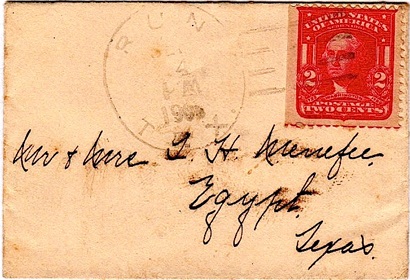 RUN
4
PM
190
UNITED STATES
OF AMERICA
2 2
POSTAGE
TWO CENTS
Mr & Mrs T H Menefee
Egypt
Texas.